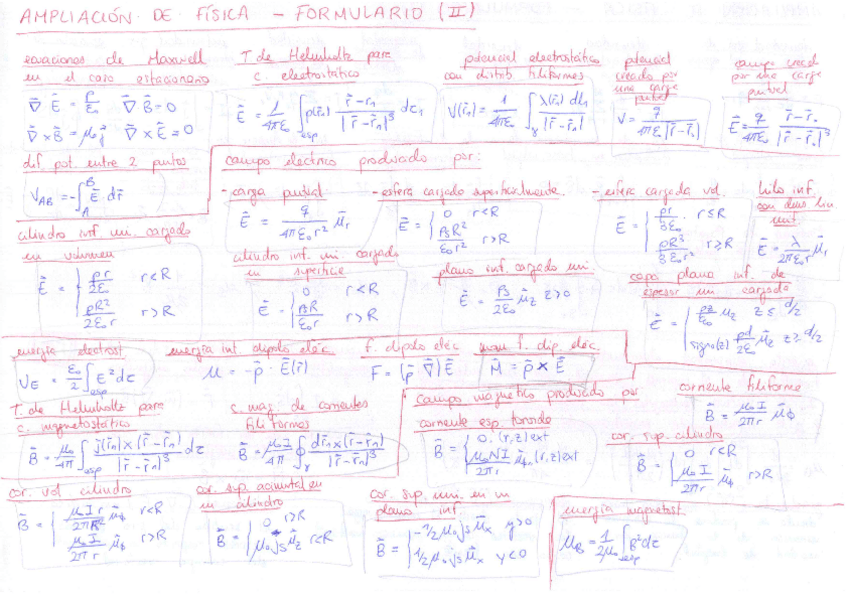 AMPLIACIÓN DE FÍSICA - FORMULARIO (II)
ecuaciones de Maxwell
en el caso estacionario
∇⃗ E⃗ = ρ/ε₀   ∇⃗ B⃗ = 0
∇⃗ × B⃗ = μ₀ j⃗   ∇⃗ × E⃗ = 0
T. de Helmholtz para
c. electrostático
E⃗ = 1/4πε₀ ∫esp ρ(r⃗₁) (r⃗ - r⃗₁)/|r⃗ - r⃗₁|³ dτ₁
potencial electrostático
con distrib filiformes
V(r⃗₁) = 1/4πε₀ ∫γ λ(r⃗₁) dl₁/|r⃗ - r⃗₁|
potencial
creado por
una carga
puntual
V = q/4πε₀|r⃗ - r⃗₁|
campo creado
por una carga
puntual
E⃗ = q/4πε₀ (r⃗ - r⃗₁)/|r⃗ - r⃗₁|³
dif. pot. entre 2 puntos
V_AB = -∫_A^B E⃗ dr⃗
campo eléctrico producido por:
- carga puntual
E⃗ = q/4πε₀r² μ⃗r
- esfera cargada superficialmente
E⃗ = { 0   r<R
ρsR²/ε₀r²   r>R
- esfera cargada vol.
E⃗ = { ρr/3ε₀   r≤R
ρR³/3ε₀r²   r≥R
hilo inf.
con dens lin
unif.
E⃗ = λ/2πε₀r μ⃗r
cilindro inf. un. cargado
en volumen
E⃗ = { ρr/2ε₀   r<R
ρR²/2ε₀r   r>R
cilindro inf. uni cargado
en superficie
E⃗ = { 0   r<R
ρsR/ε₀r   r>R
plano inf. cargado uni
E⃗ = ρs/2ε₀ μ⃗z z>0
capa plana inf. de
espesor un cargado
E⃗ = { ρz/ε₀ μ⃗z   z ≤ d/2
signo(z) ρd/2ε₀ μ⃗z   z ≥ d/2
energía electrost
U_E = ε₀/2 ∫esp E² dτ
energía int. dipolo eléc.
U = -p⃗ · E⃗(r⃗)
f. dipolo eléc
F = (p⃗ ∇⃗) E⃗
mom f. dip. eléc.
M⃗ = p⃗ × E⃗
T. de Helmholtz para
c. magnetostático
B⃗ = μ₀/4π ∫esp j⃗(r⃗₁) × (r⃗ - r⃗₁)/|r⃗ - r⃗₁|³ dτ
c. mag. de corrientes
filiformes
B⃗ = μ₀I/4π ∮γ dr⃗₁ × (r⃗ - r⃗₁)/|r⃗ - r⃗₁|³
campo magnético producido por
corriente esp. toroide
B⃗ = { 0. (r,z) ext
μ₀NI/2πr μ⃗φ, (r,z) ext
corriente filiforme
B⃗ = μ₀I/2πr μ⃗φ
cor. sup. cilindro
B⃗ = { 0   r<R
μ₀I/2πr μ⃗φ   r>R
cor. vol cilindro
B⃗ = { μ₀Ir/2πR² μ⃗φ   r<R
μ₀I/2πr μ⃗φ   r>R
cor. sup acimutal en
un cilindro
B⃗ = { 0   r>R
μ₀js μ⃗z   r<R
cor. sup. uni. en un
plano inf
B⃗ = { -1/2 μ₀js μ⃗x   y>0
1/2 μ₀js μ⃗x   y<0
energía magnetost.
U_B = 1/2μ₀ ∫esp B² dτ